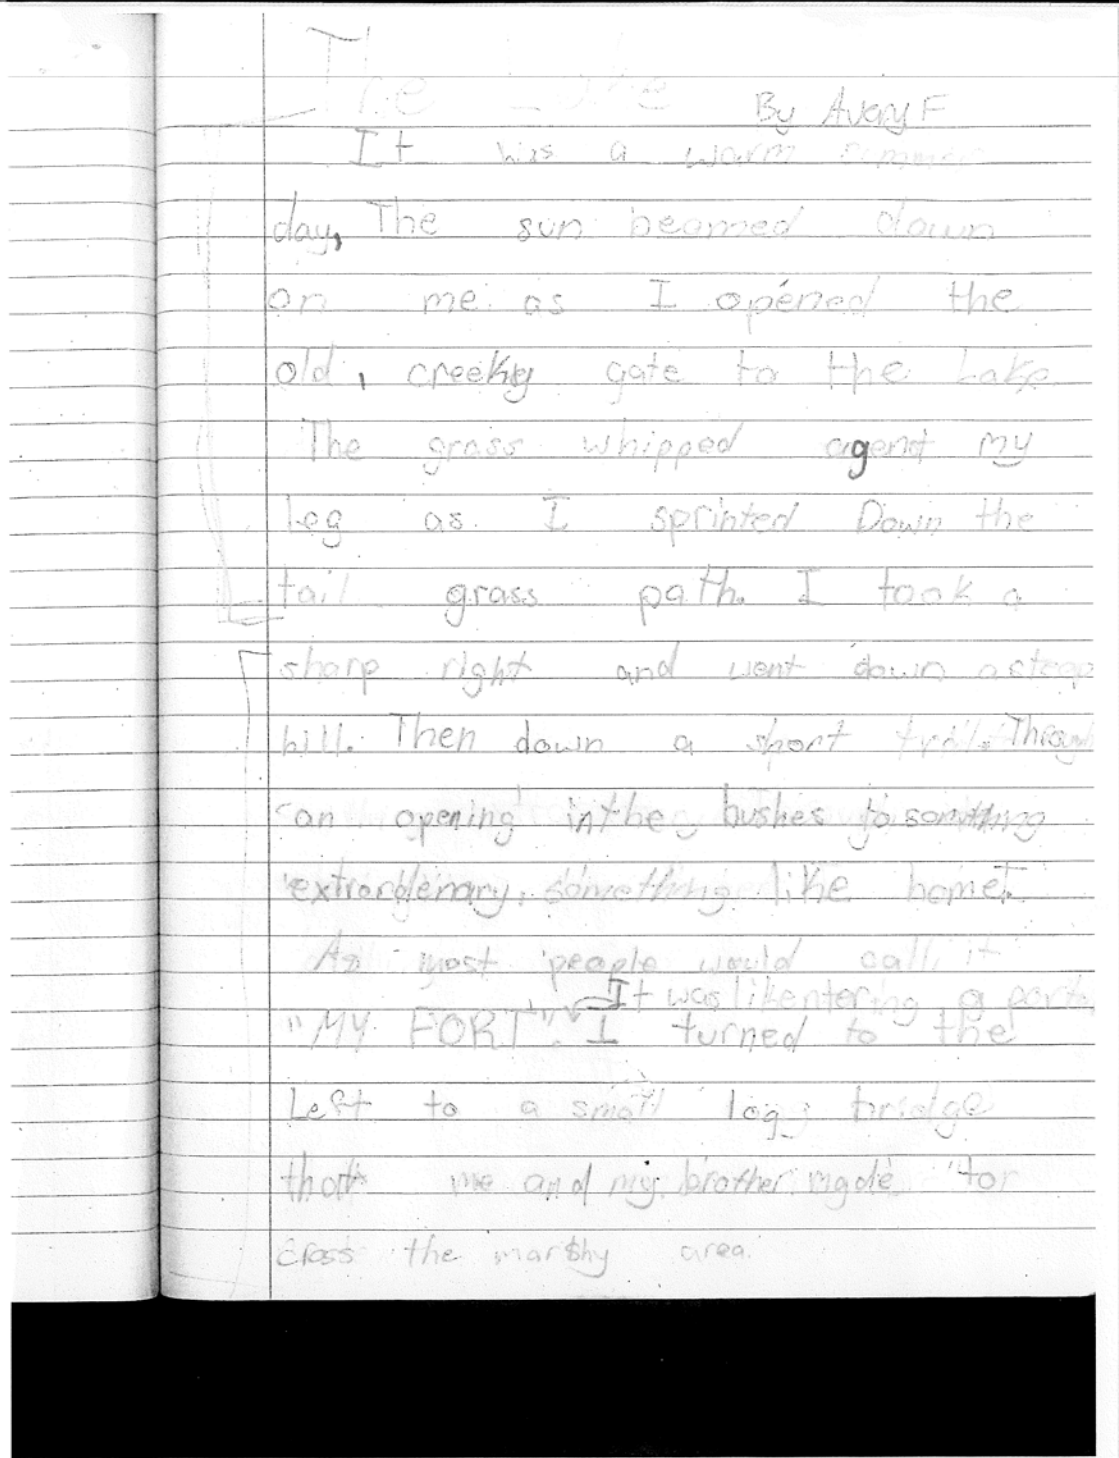 The Lake
By Avery F
It was a warm summer
day, The sun beamed down
on me as I opened the
old, creeky gate to the Lake.
The grass whipped agenst my
leg as I sprinted Down the
tall grass path. I took a
sharp right and went down a steep
hill. Then down a short trail. Through
an opening in the bushes to something
extrordenary, something like home.
As most people would call it
It was like entering a
"MY FORT". I turned to the
Left to a small log bridge
that me and my brother made to
cross the marshy area.